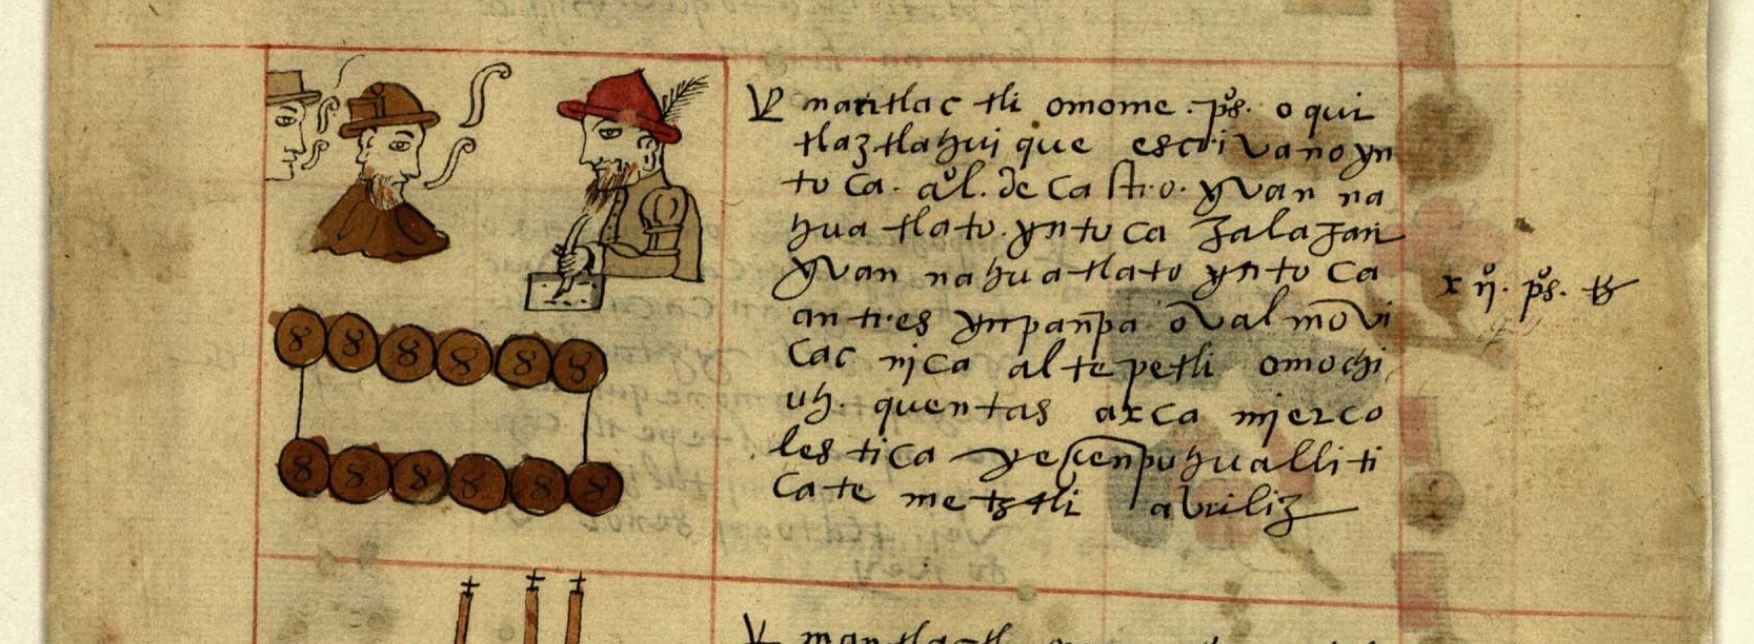 mantlactli omome . pºs. oqui
tlaztlahui que escrivano yn
toca . al. de castro . yvan na
huatlato . yntoca zalazan
yvan nahuatlato yntoca
antres ynpanpa oval movi
cac nica altepetli omochi
uh . quentas axca mjerco
les tica ye cenpuhualli ti
cate metztli abriliz
x ij. pºs. tz
8 8 8 8 8 8
8 8 8 8 8 8
mantlactl